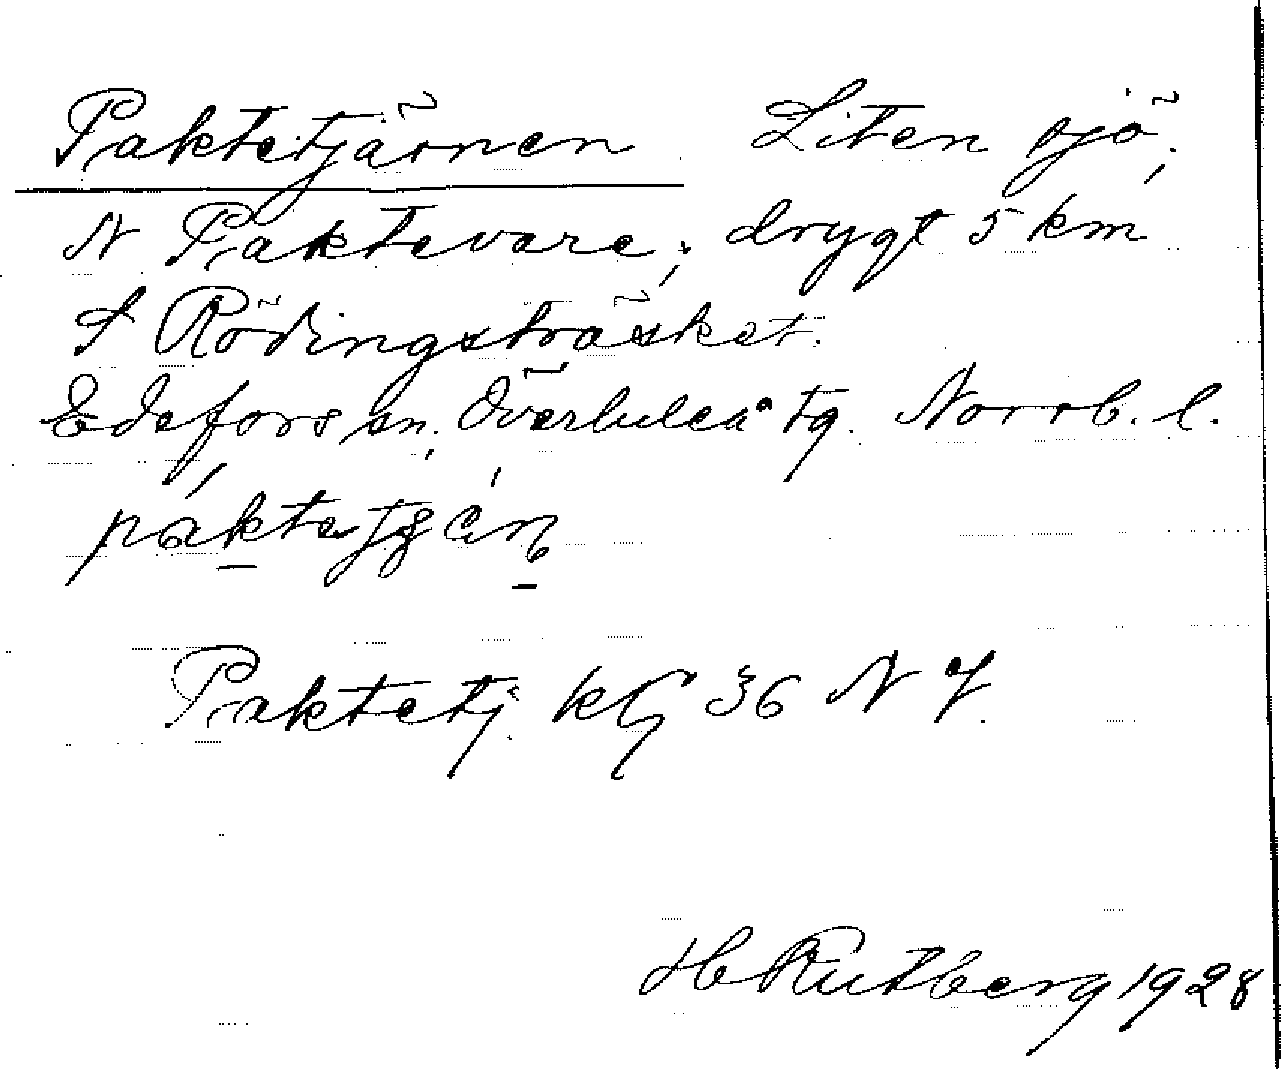 Paktetjärnen. Liten sjö,
N Paktevare; drygt 5 km
S Rödingsträsket.
Edefors sn, Överluleå tg. Norrb. l.
Paktetj. kbl 36 N
H Rutberg 1928